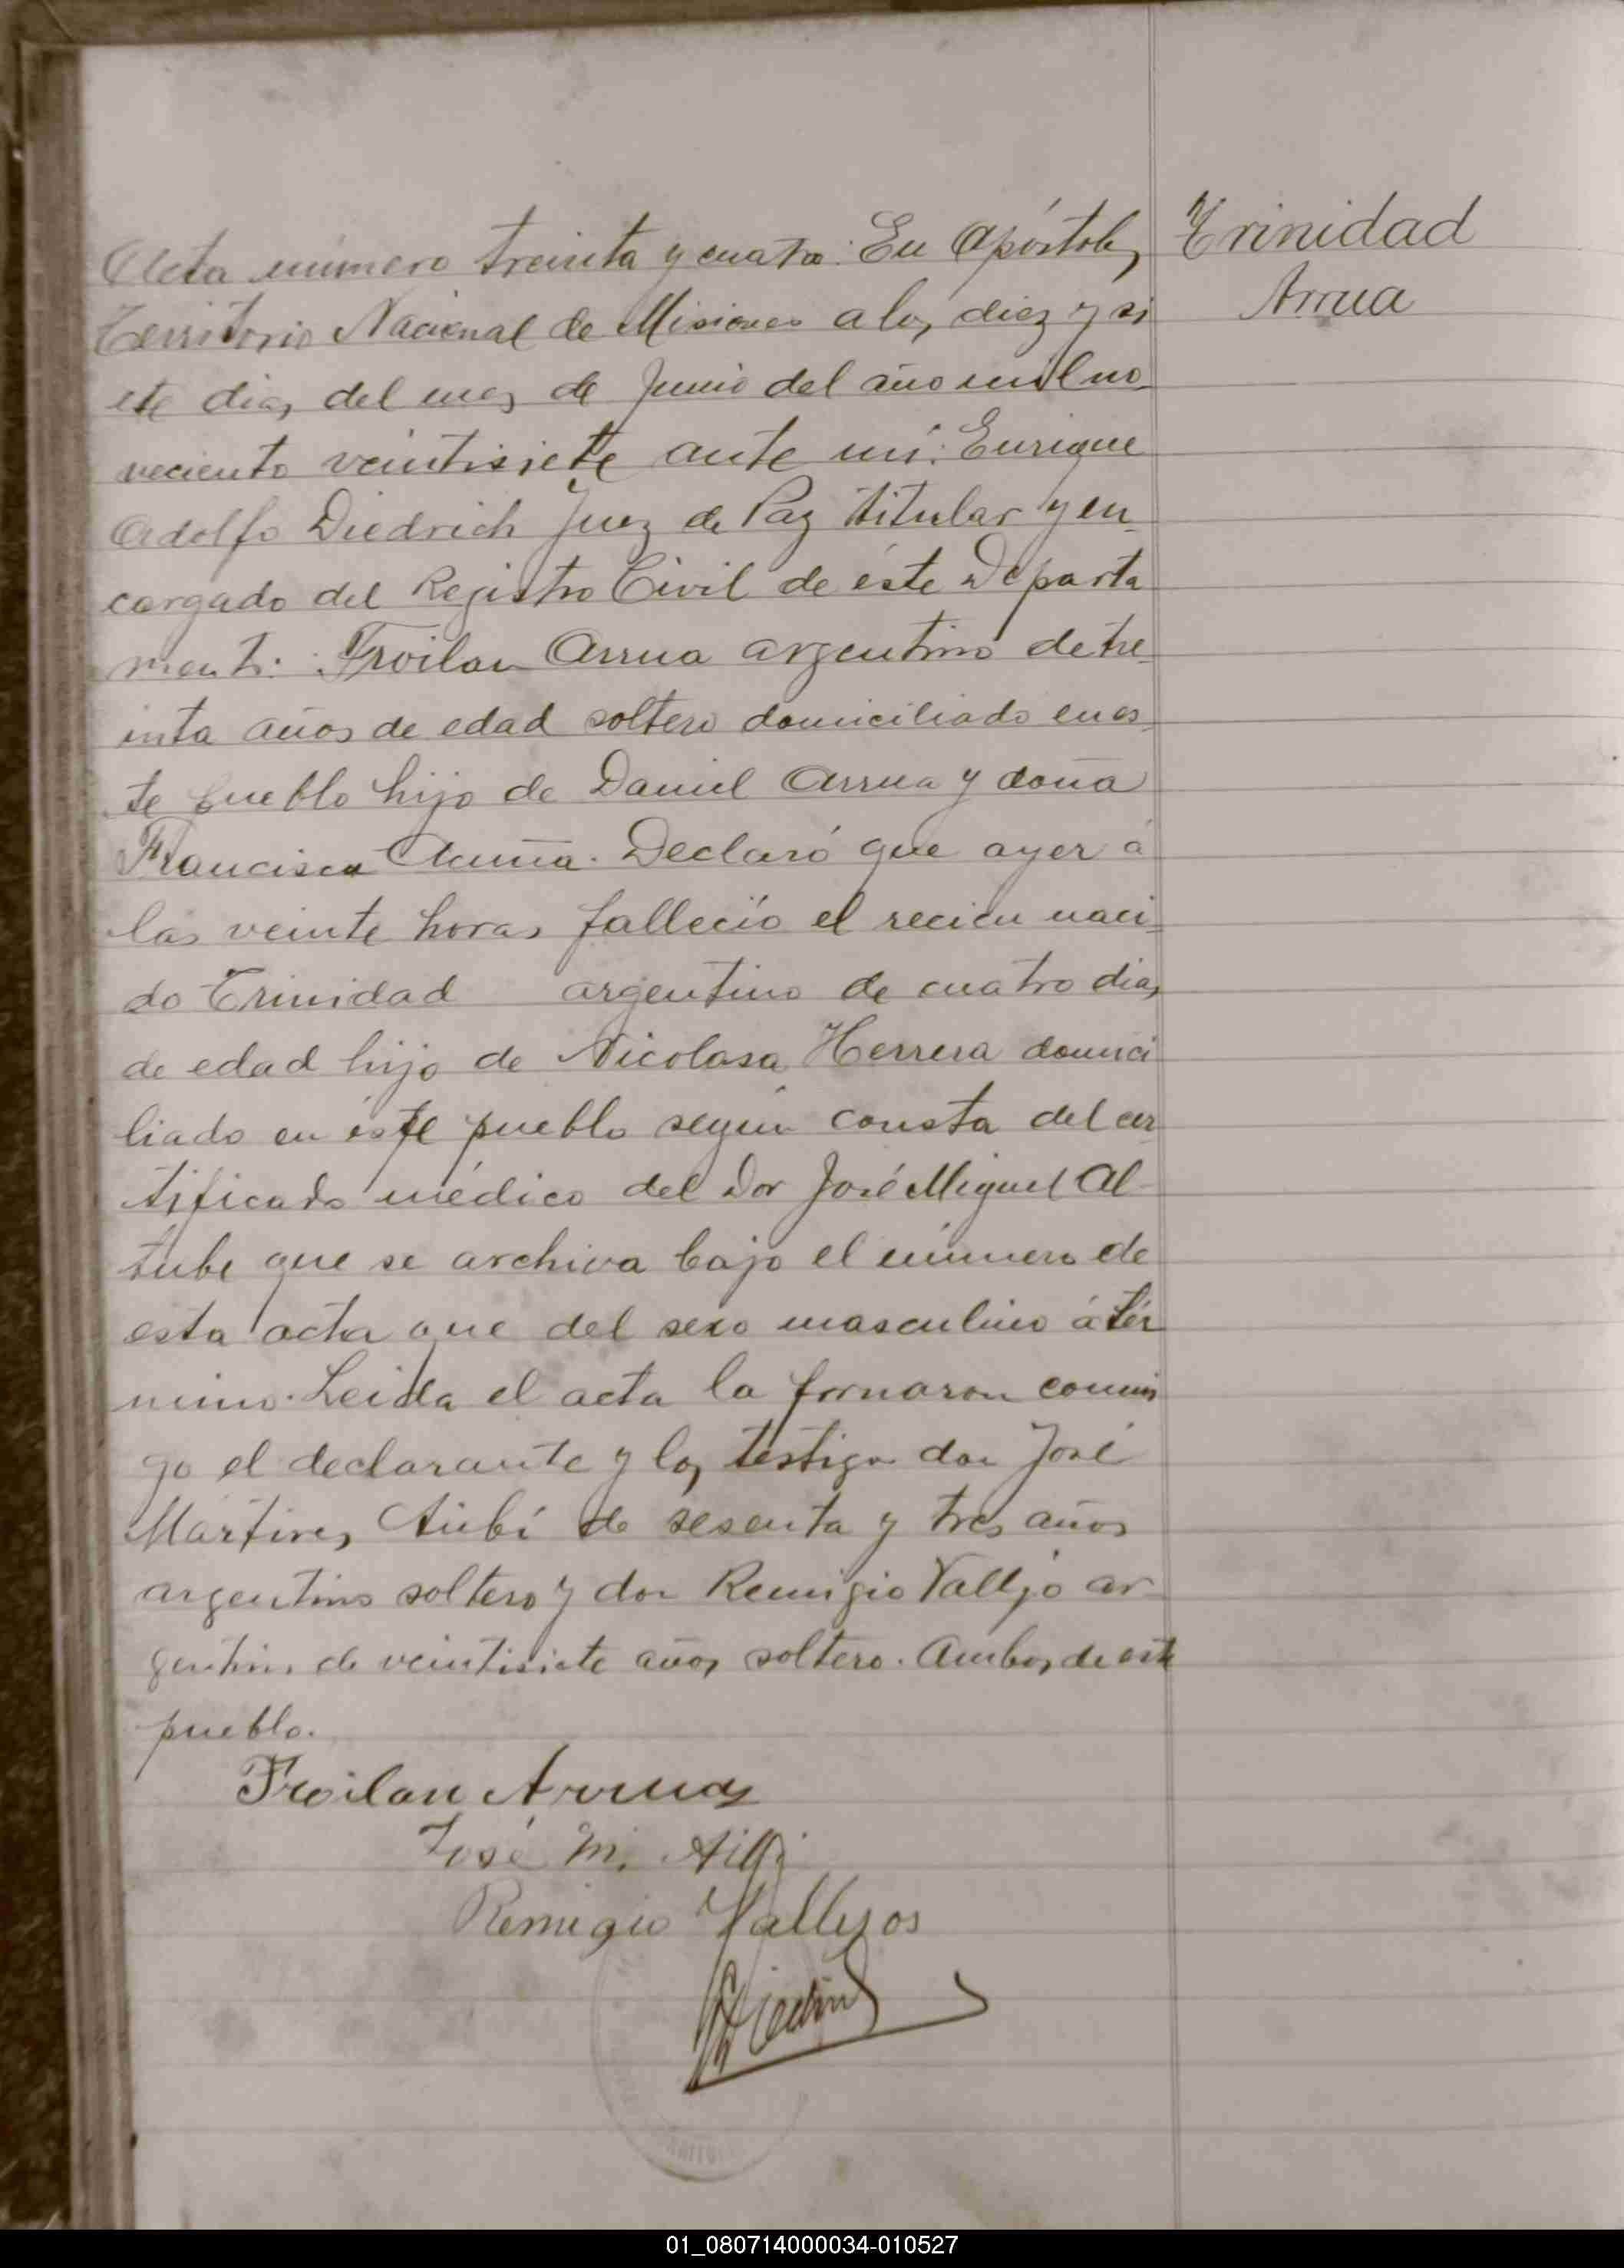 Acta número treinta y cuatro: En Apóstoles
Trinidad
Arrua
Territorio Nacional de Misiones a los diez y si
ete dias del mes de Junio del año mil no-
veciento veintisiete ante mí: Enrique
Adolfo Diedrich Juez de Paz titular y en-
cargado del Registro Civil de éste Departa
mento: Froilan Arrua argentino de tre-
inta años de edad soltero domiciliado en es-
te pueblo hijo de Daniel Arrua y doña
Francisca Acuña. Declaró que ayer á
las veinte horas fallecío el recien naci-
do Trinidad argentino de cuatro dias
de edad hijo de Nicolasa Herrera domici
liado en éste pueblo según consta del cer
tificado médico del Dor José Miguel Al-
tube que se archiva bajo el número de
esta acta que del sexo masculino á tér
mino. Leida el acta la firmaron conmi
go el declarante y los testigos don José
Martires de sesenta y tres años
argentino soltero y don Remigio Vallejo ar-
gentino de veintisiete años soltero. Ambos de este
pueblo.
Froilan Arrua
José M.
Remigio Vallejos
01_080714000034-010527